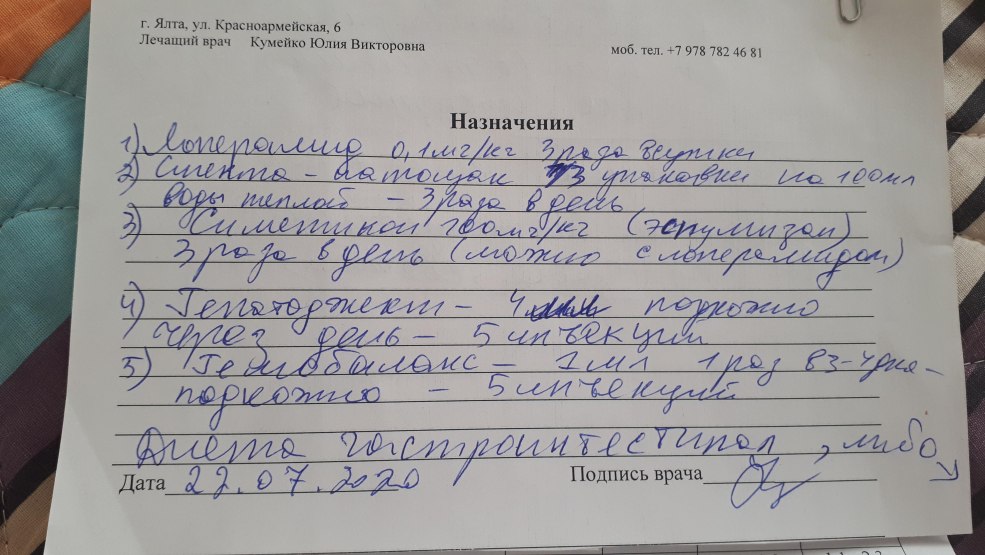 г. Ялта, ул. Красноармейская, 6
Лечащий врач Кумейко Юлия Викторовна
моб. тел. +7 978 782 46 81
Назначения
1) Лоперамид 0,1мг/кг 3 раза в сутки
2) Смекта – натощак 1/3 упаковки на 100мл
воды теплой – 3 раза в день
3) Симетикон мг/кг (эспумизан)
3 раза в день (можно с лоперамидом)
4) Гепатоджект – 4 подкожно
через день – 5 инъекций
5) Гемобаланс – 1мл 1 раз в 3-4 дня –
подкожно – 5 инъекций
Диета гастроинтестинал, либо
Дата 22.07.2020 Подпись врача